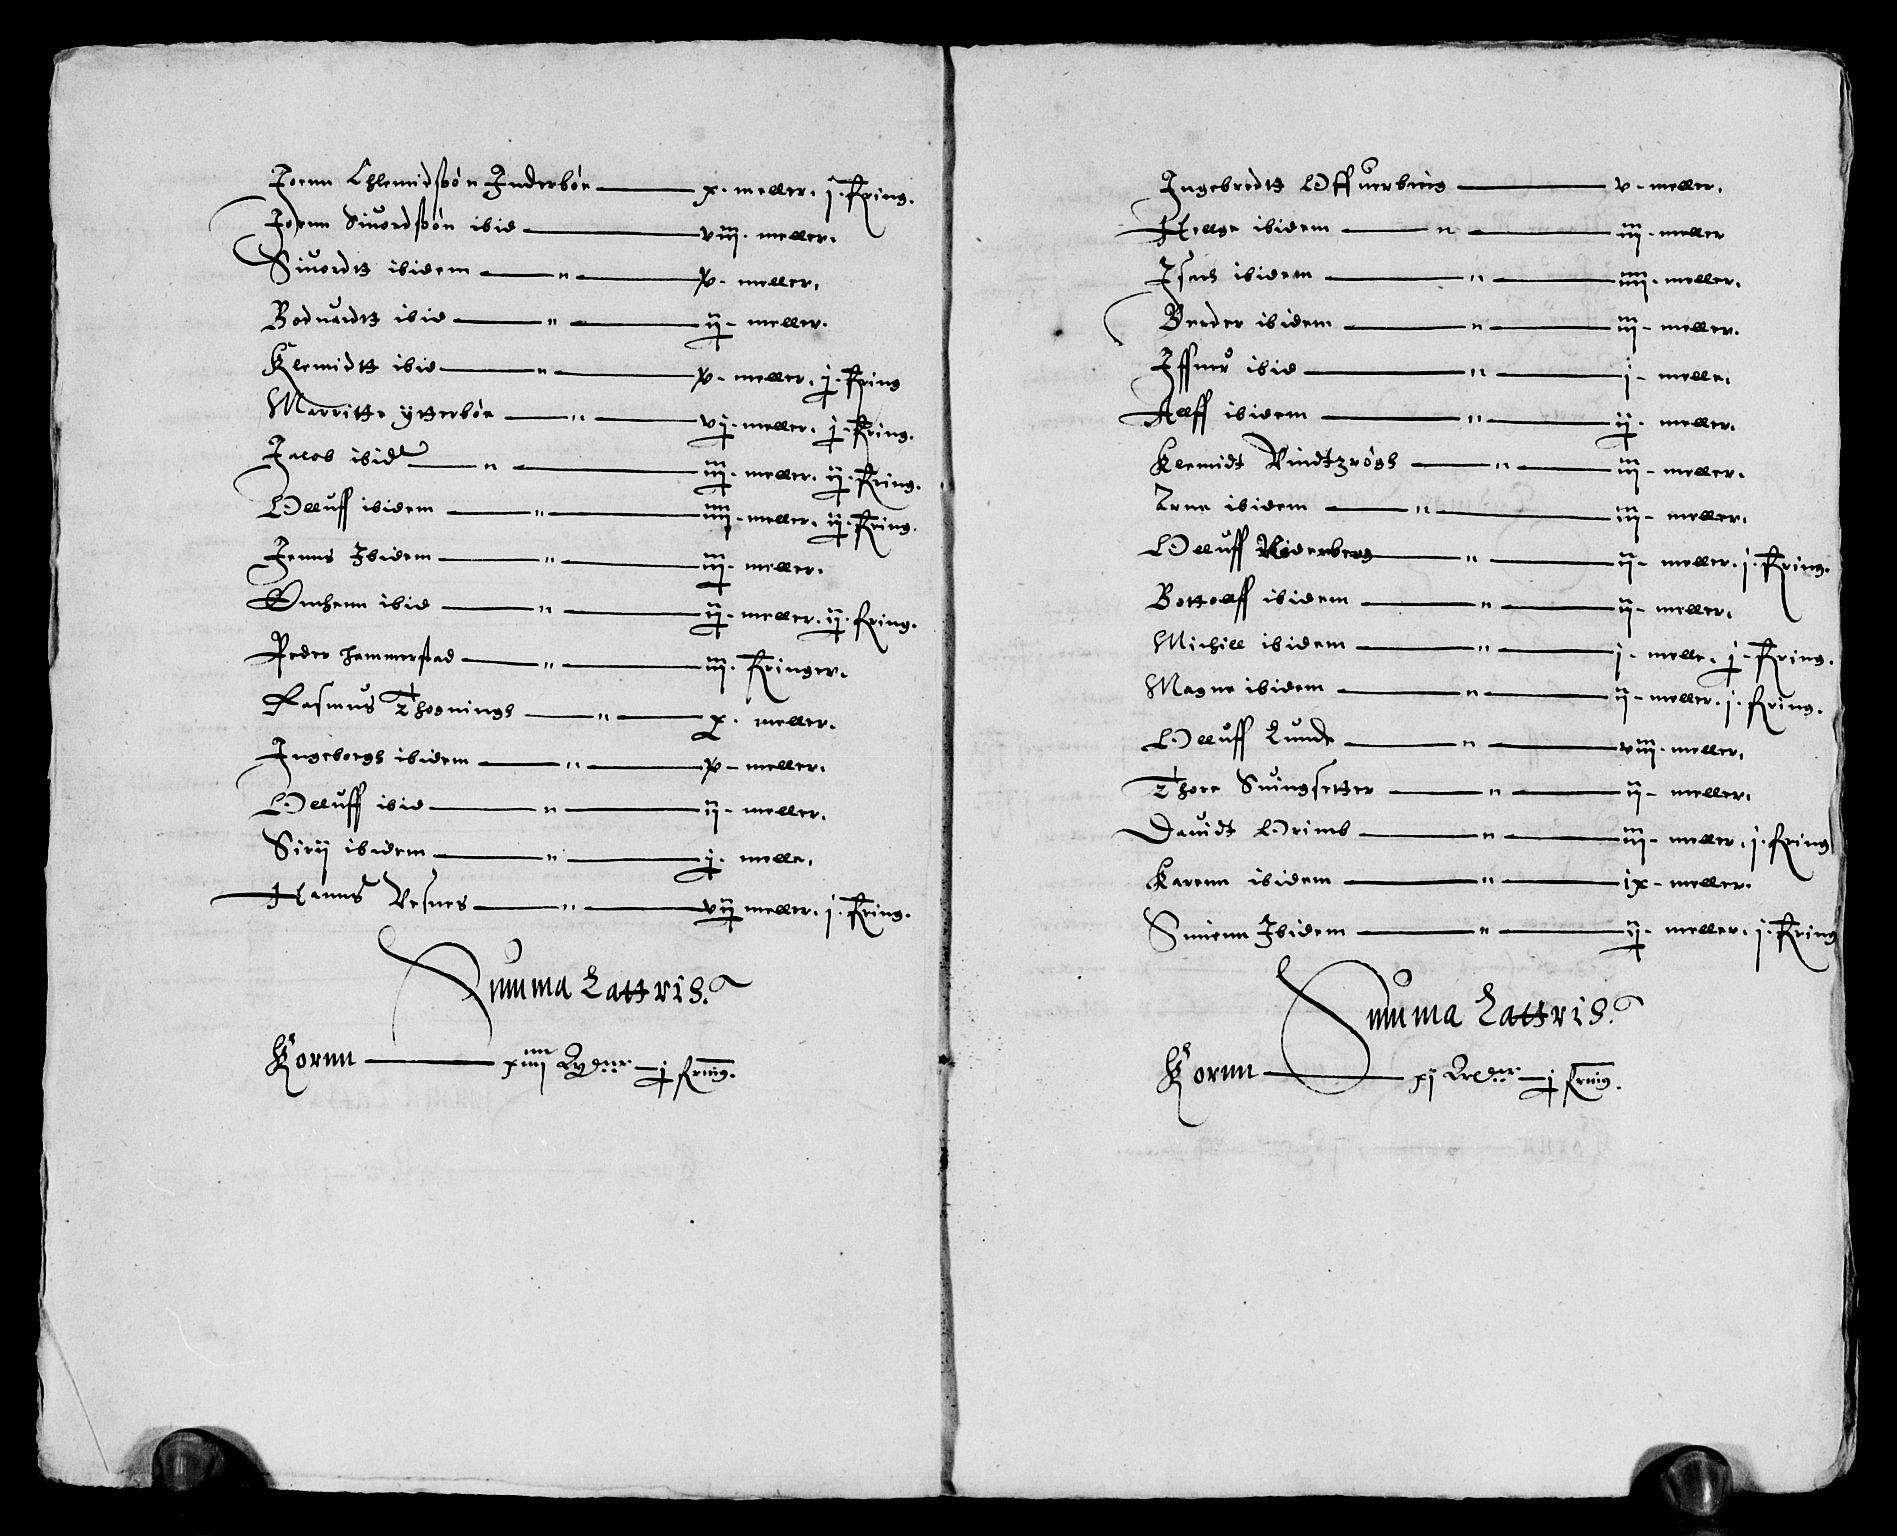 Joenn Chlemidsøn Inderbøe — x. meller. j. Kring.
Joenn Siuordsøn ibid — viij. meller.
Siuordtt ibidem — " — v - meller.
Boduardtt ibid — " — ij - meller.
Klemidtt ibid — " — v - meller. j. Kring
Marritte ytterbøe — " — vij - meller. j. Kring.
Jacob ibid — " — iij. meller. ij. Kring.
Olluff ibidem — " — iiij - meller. ij. Kring.
Jenns Ibidem — " — iij - meller.
ibid — " — ij - meller. ij. kring.
Peder Hammerstad — " — iij. Kringer.
Rasmus Thogningh — " — x. meller.
Ingeborgh ibidem — " — v - meller.
Olluff ibid — " — ij - meller.
Sirij ibidem — " — j. melle.
Hanns Vesnes — " — vij meller. j. Kring.
Summa Lattris.
Kornn — j kring.
Ingebredtt — v - meller.
Hellge ibidem — " — iij - meller
Isach ibidem — " — iiij - meller.
Peeder ibidem — " — iij - meller.
Iffuer ibid — " — j - melle.
Allff ibidem — " — ij - meller.
Klemidt — " — iij - meller.
Arne ibidem — " — iij - meller.
Olluff — " — ij - meller. j. Kring.
Bottollff ibidem — " — ij - meller.
Michill ibidem — " — j - melle. j - Kring.
Magne ibidem — " — ij - meller. j. kring.
Olluff Lunde — " — viij - meller.
Thore Suingsetter — " — ij - meller.
Dauidt Grimb — " — iij - meller. j. kring
Karenn ibidem — " — ix - meller.
Simenn Ibidem — " — ij - meller. j. Kring
Summa Lattris.
Kornn — xij — j kring.